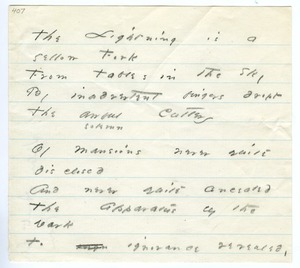 407
The Lightning is a
yellow Fork
From Tables in the Sky
By inadvertent fingers dropt
The awful Cutlery
solemn
Of mansions never quite
disclosed
And never quite concealed
The Apparatus of the
Dark
To ignorance revealed,